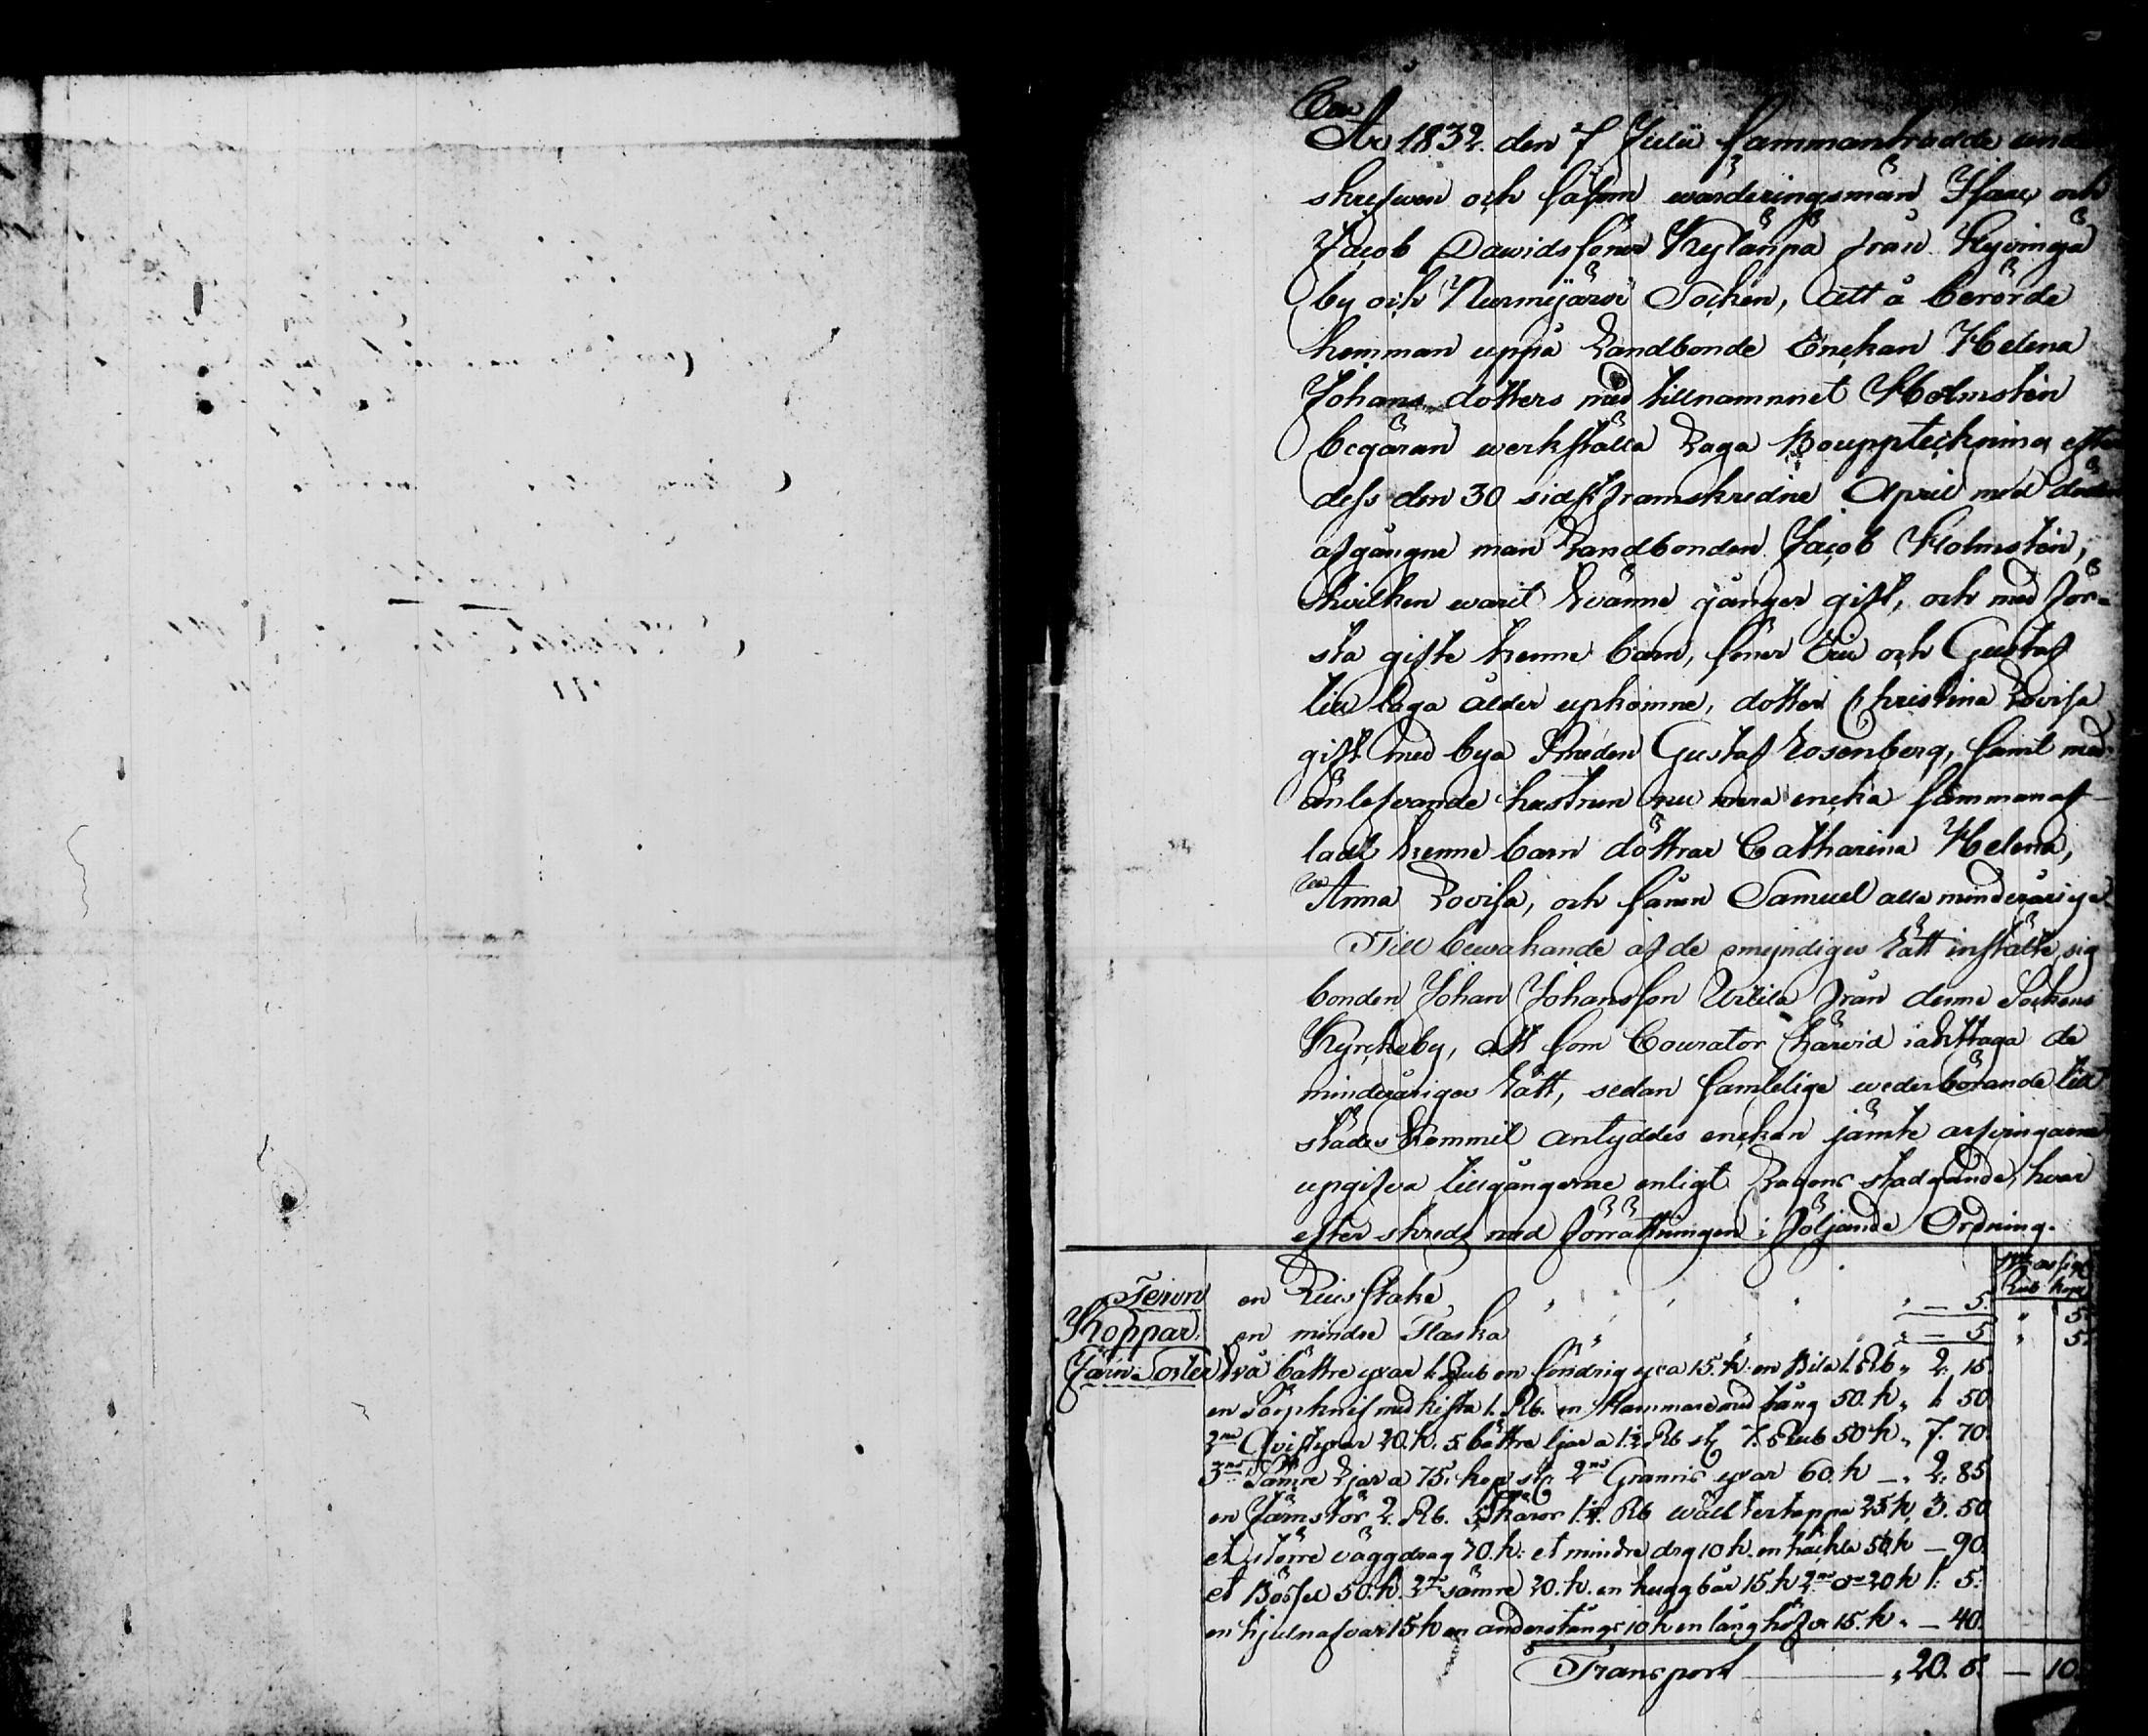 År 1832 den 7 Julii sammanträdde under
skrefwen och såsom wärderingsmän Isaac och
Jacob Davidssöner Kytänpä från Hyvingä
by och Nurmijärvi Sochen, att å berörde
hemman uppå Landbonde Enckan Helena
Johans dotters med tillnamnet Holmsten
begäran werkställa Laga Bouppteckning efter
dess den 30 sidst framskredne April med döden
afgångne man Landbonden Jacob Holmsten,
hvilken warit tvänne gånger gift, och med för-
sta gifte trenne barn, söner Eric och Gustaf
till laga ålder upkomne, dotter Christina Lovisa
gift med bya Smeden Gustaf Rosenberg, samt med
änlefvande hustrun nu mera encka samman af-
ladt trenne barn döttrar Catharina Helena,
Anna Lovisa, och sånen Samuel alla minderåriga
Till bewakande af de omyndigas Rätt instälte sig
bonden Johan Johansson Uilila från denne Sockens
Kyrckeby, att som Courator härvid iakttaga de
minderårigas Rätt, sedan samtelige wederbörande till
städes kommit antyddes enckan jämte arfvingarne
upgifva tillgångarne enligt Lagens stadgande, hvar
efter skreds med förrättningen i följande Ordning.
Rub Kop
Tenn en Liusstake " — 5. " 5.
Koppar. en mindre Flaska " — 5 " 5.
Järn Saker två bättre yxar 1. Rub en söndrig yxa 15. k. en Bila 1. Rb " 2: 15.
en med kista 1. Rb. en Hammare med tång 50. k " 1: 50
2ne Qvistyxar 20. k. 5. bättre ljar a 1½ Rb st 7. Rub 50 k " 7. 70.
3ne Sämre Ljar a 75. kop st. 2ne yxar 60. k — " 2: 85
en Järnstör 2. Rb. 5. Skäror 1¼. Rb 25 k, 3. 50
et större väggdrag 70. k: et mindre drg 10 k. en häckla 50 k — 90.
et 50. k. 2ne sämre 20. k. en 15. k 2ne 20 k 1: 5:
en hjulnafvar 15 k en 10 k en 15. k " — 40.
Transport " 20. 5. — 10.